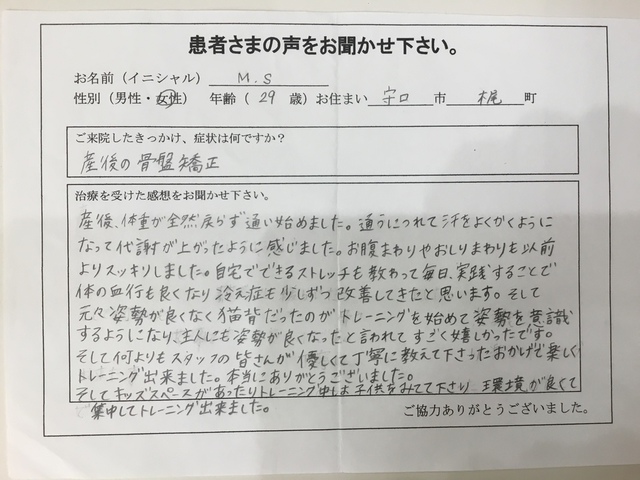 患者さまの声をお聞かせ下さい。
お名前（イニシャル） M.S
性別（男性・女性） 年齢（ 29 歳）お住まい 守口 市 梶 町
ご来院したきっかけ、症状は何ですか？
産後の骨盤矯正
治療を受けた感想をお聞かせ下さい。
産後、体重が全然戻らず通い始めました。通うにつれて汗をよくかくように
なって代謝が上がったように感じました。お腹まわりやおしりまわりも以前
よりスッキリしました。自宅でできるストレッチも教わって毎日、実践することで
体の血行も良くなり冷え症も少しずつ改善してきたと思います。そして
元々姿勢が良くなく猫背だったのがトレーニングを始めて姿勢を意識
するようになり、主人にも姿勢が良くなったと言われてすごく嬉しかったです。
そして何よりもスタッフの皆さんが優しくて丁寧に教えて下さったおかげで楽しく
トレーニング出来ました。本当にありがとうございました。
そしてキッズスペースがあったりトレーニング中もお子供をみてて下さり、環境が良くて
集中してトレーニング出来ました。
ご協力ありがとうございました。